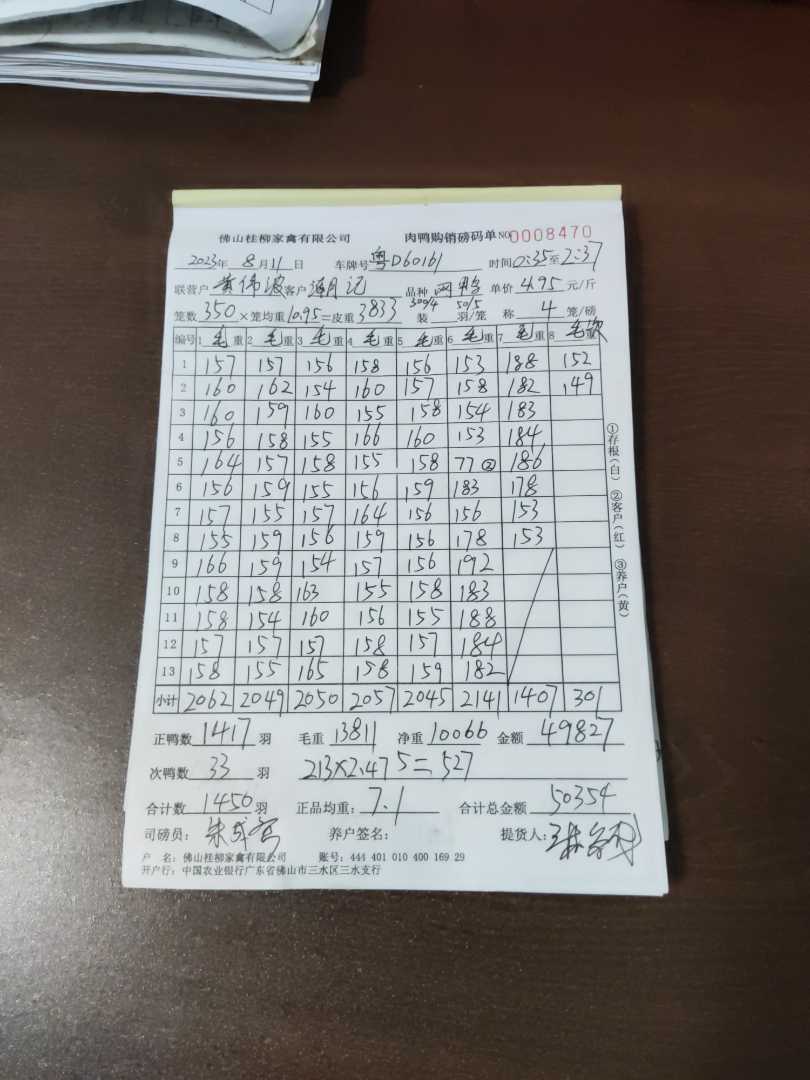 佛山桂柳家禽有限公司 肉鸭购销磅码单 NO 0008470
2023年 8月11日 车牌号 粤D60161 时间 0:35至2:37
联营户 黄伟波 客户 记 品种 单价 4.95 元/斤
笼数 350 ×笼均重 10.95=皮重 3833 300/4 50/5 装 羽/笼 称 4 笼/磅
编号 1 毛重 2 毛重 3 毛重 4 毛重 5 毛重 6 毛重 7 毛重 8 毛重 次
1 157 157 156 158 156 153 188 152
2 160 162 154 160 157 158 182 149
3 160 159 160 155 158 154 183
4 156 158 155 166 160 153 184
5 164 157 158 155 158 77② 186
6 156 159 155 156 159 183 178
7 157 155 157 164 156 156 153
8 155 159 156 159 156 178 153
9 166 159 154 157 156 192
10 158 158 163 155 158 183
11 158 154 160 156 155 188
12 157 157 157 158 157 184
13 158 155 165 158 159 182
小计 2062 2049 2050 2057 2045 2141 1407 301
正鸭数 1417 羽 毛重 13811 净重 10066 金额 49827
次鸭数 33 羽 213×2.475=527
合计数 1450 羽 正品均重: 7.1 合计总金额 50354
司磅员: 朱 养户签名: 提货人:
户 名: 佛山桂柳家禽有限公司 账号: 444 401 010 400 169 29
开户行: 中国农业银行广东省佛山市三水区三水支行
①存根(白) ②客户(红) ③养户(黄)